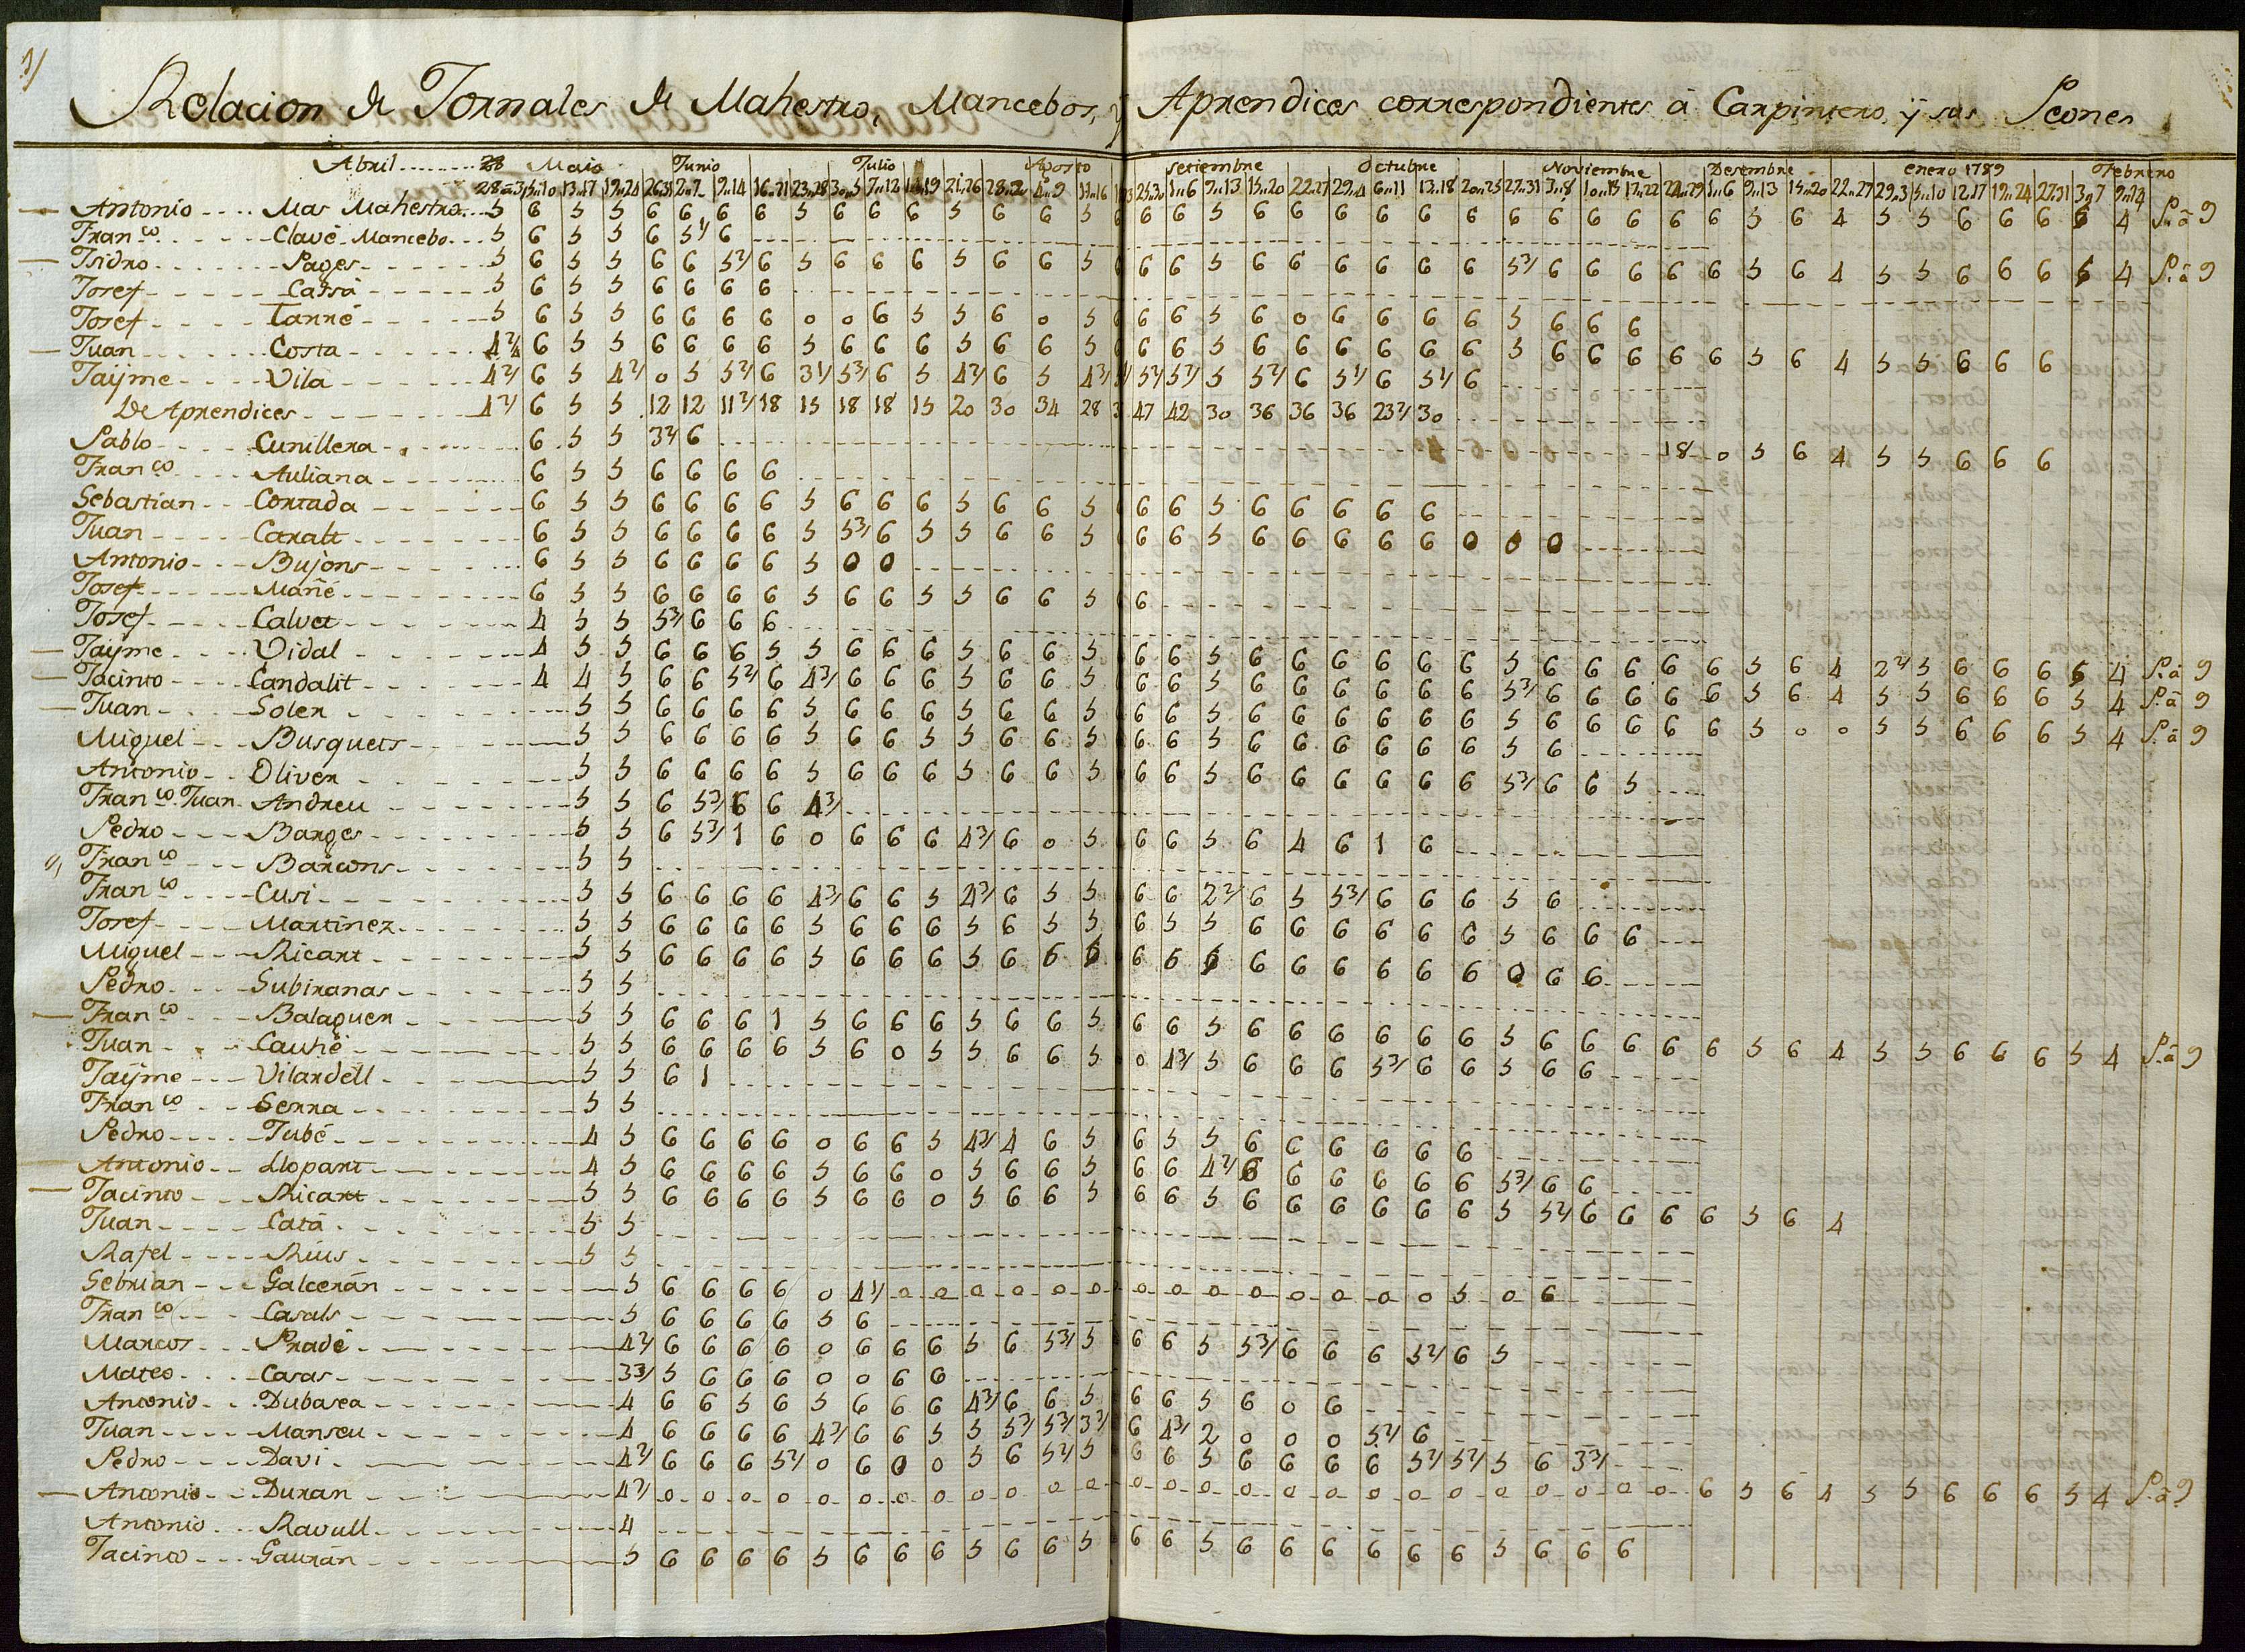 1/
Relacion de Jornales de Mahestro, Mancebos, y Aprendices correspondientes â Carpintero, ÿ sus Peones
Abril 28 Maio Junio Julio Agosto setiembre Octubre Noviembre Desembre enero 1789 Febrero
28=3 5..10 13..17 19..24 26..31 2..7 9..14 16..21 23..28 30..5 7..12 14..19 21..26 28..2 4..9 11..16 25..30 1..6 9..13 15..20 22..27 29..4 6..11 13..18 20..25 27..31 3..8 10..15 17..22 24..29 1..6 9..13 15..20 22..27 29..3 5..10 12..17 19..24 27..31 3..7 9..14
Antonio Mas Mahestro 5 6 5 5 6 6 6 6 5 6 6 6 5 6 6 5 6 6 5 6 6 6 6 6 6 6 6 6 6 6 6 5 6 4 5 5 6 6 6 5 4 P. â 9
Fran.co Clavê Mancebo 5 6 5 5 6 5 1/ 6
Isidro Pages 5 6 5 5 6 6 5 2/ 6 5 6 6 6 5 6 6 5 6 6 5 6 6 6 6 6 6 5 3/ 6 6 6 6 6 5 6 4 5 5 6 6 6 5 4 P. â 9
Josef Catsâ 5 6 5 5 6 6 6 6
Josef Tarrê 5 6 5 5 6 6 6 6 0 0 6 5 5 6 0 5 6 6 5 6 0 6 6 6 6 5 6 6 6
Juan Costa 4 2/ 6 5 5 6 6 6 6 5 6 6 6 5 6 6 5 6 6 5 6 6 6 6 6 6 5 6 6 6 6 6 5 6 4 5 5 6 6 6
Jaÿme Vila 4 2/ 6 5 4 2/ 0 5 5 2/ 6 3 1/ 5 3/ 6 5 4 2/ 6 5 4 3/ 5 2/ 5 2/ 5 5 2/ 6 5 1/ 6 5 1/ 6
De Aprendices 4 2/ 6 5 5 12 12 11 2/ 18 15 18 18 15 20 30 34 28 47 42 30 36 36 36 23 2/ 30
Pablo Cunillera 6 5 5 3 2/ 6 18 0 5 6 4 5 5 6 6 6
Fran.co Auliana 6 5 5 6 6 6 6
Sebastian Cortada 6 5 5 6 6 6 6 5 6 6 6 5 6 6 5 6 6 5 6 6 6 6 6
Juan Caralt 6 5 5 6 6 6 6 5 5 3/ 6 5 5 6 6 5 6 6 5 6 6 6 6 6 0 0 0
Antonio Bujons 6 5 5 6 6 6 6 5 0 0
Josef Mañé 6 5 5 6 6 6 6 5 6 6 5 5 6 6 5 6
Josef Calvet 4 5 5 5 3/ 6 6 6
Jaÿme Vidal 4 5 5 6 6 6 5 5 6 6 6 5 6 6 5 6 6 5 6 6 6 6 6 6 5 6 6 6 6 6 5 6 4 2 2/ 5 6 6 6 5 4 P. â 9
Jacinto Candalit 4 4 5 6 6 5 2/ 6 4 3/ 6 6 6 5 6 6 5 6 6 5 6 6 6 6 6 6 5 3/ 6 6 6 6 6 5 6 4 5 5 6 6 6 5 4 P. â 9
Juan Soler 5 5 6 6 6 6 5 6 6 6 5 6 6 5 6 6 5 6 6 6 6 6 6 5 6 6 6 6 6 5 0 0 5 5 6 6 6 5 4 P. â 9
Miguel Busquets 5 5 6 6 6 6 5 6 6 5 5 6 6 5 6 6 5 6 6 6 6 6 6 5 6
Antonio Oliver 5 5 6 6 6 6 5 6 6 6 5 6 6 5 6 6 5 6 6 6 6 6 6 5 3/ 6 6 5
Fran.co Juan Andreu 5 5 6 5 3/ 6 6 4 3/
Pedro Barges 5 5 6 5 3/ 1 6 0 6 6 6 4 3/ 6 0 5 6 6 5 6 4 6 1 6
Fran.co Barcons 5 5
Fran.co Cusi 5 5 6 6 6 6 4 3/ 6 6 5 4 3/ 6 5 5 6 6 2 2/ 6 5 5 3/ 6 6 6 5 6
Josef Martinez 5 5 6 6 6 6 5 6 6 6 5 6 5 5 6 5 5 6 6 6 6 6 6 5 6 6 6
Miguel Ricart 5 5 6 6 6 6 5 6 6 6 5 6 6 6 6 6 5 6 6 6 6 6 6 0 6 6
Pedro Subiranas 5 5
Fran.co Balaguer 5 5 6 6 6 1 5 6 6 6 5 6 6 5 6 6 5 6 6 6 6 6 6 5 6 6 6 6 6 5 6 4 5 5 6 6 6 5 4 P. â 9
Juan Cauhê 5 5 6 6 6 6 5 6 0 5 5 6 6 5 0 4 3/ 5 6 6 6 5 3/ 6 6 5 6 6
Jaÿme Vilardell 5 5 6 1
Fran.co Serra 5 5
Pedro Jubê 4 5 6 6 6 6 0 6 6 5 4 3/ 4 6 5 6 5 5 6 6 6 6 6 6
Antonio Llopart 4 5 6 6 6 6 5 6 6 0 5 6 6 5 6 6 4 2/ 6 6 6 6 6 6 5 3/ 6 6
Jacinto Ricart 5 5 6 6 6 6 5 6 6 0 5 6 6 5 6 6 5 6 6 6 6 6 6 5 5 2/ 6 6 6 6 5 6 4
Juan Catâ 5 5
Rafel Rius 5 5
Sebrian Galcerân 5 6 6 6 6 0 4 1/ 0 0 0 0 0 0 0 0 0 0 0 0 0 0 5 0 6
Fran.co Casals 5 6 6 6 6 5 6
Marcos Pradê 4 2/ 6 6 6 6 0 6 6 6 5 6 5 3/ 5 6 6 5 5 3/ 6 6 6 5 2/ 6 5
Mateo Casas 3 3/ 5 6 6 6 0 0 6 6
Antonio Dubasea 4 6 6 5 6 5 6 6 6 4 3/ 6 6 5 6 6 5 6 0 6
Juan Manseu 4 6 6 6 6 4 3/ 6 6 5 5 5 3/ 5 3/ 3 3/ 6 4 3/ 2 0 0 0 5 2/ 6
Pedro Davi 4 2/ 6 6 6 5 2/ 0 6 0 0 5 6 5 2/ 5 6 6 5 6 6 6 6 5 2/ 5 2/ 5 6 3 3/
Antonio Duran 4 2/ 0 0 0 0 0 0 0 0 0 0 0 0 0 0 0 0 0 0 0 0 0 0 0 0 0 0 6 5 6 4 5 5 6 6 6 5 4 P. â 9
Antonio Ravull 4
Jacinto Gaurân 5 6 6 6 6 5 6 6 6 5 6 6 5 6 6 5 6 6 6 6 6 6 5 6 6 6